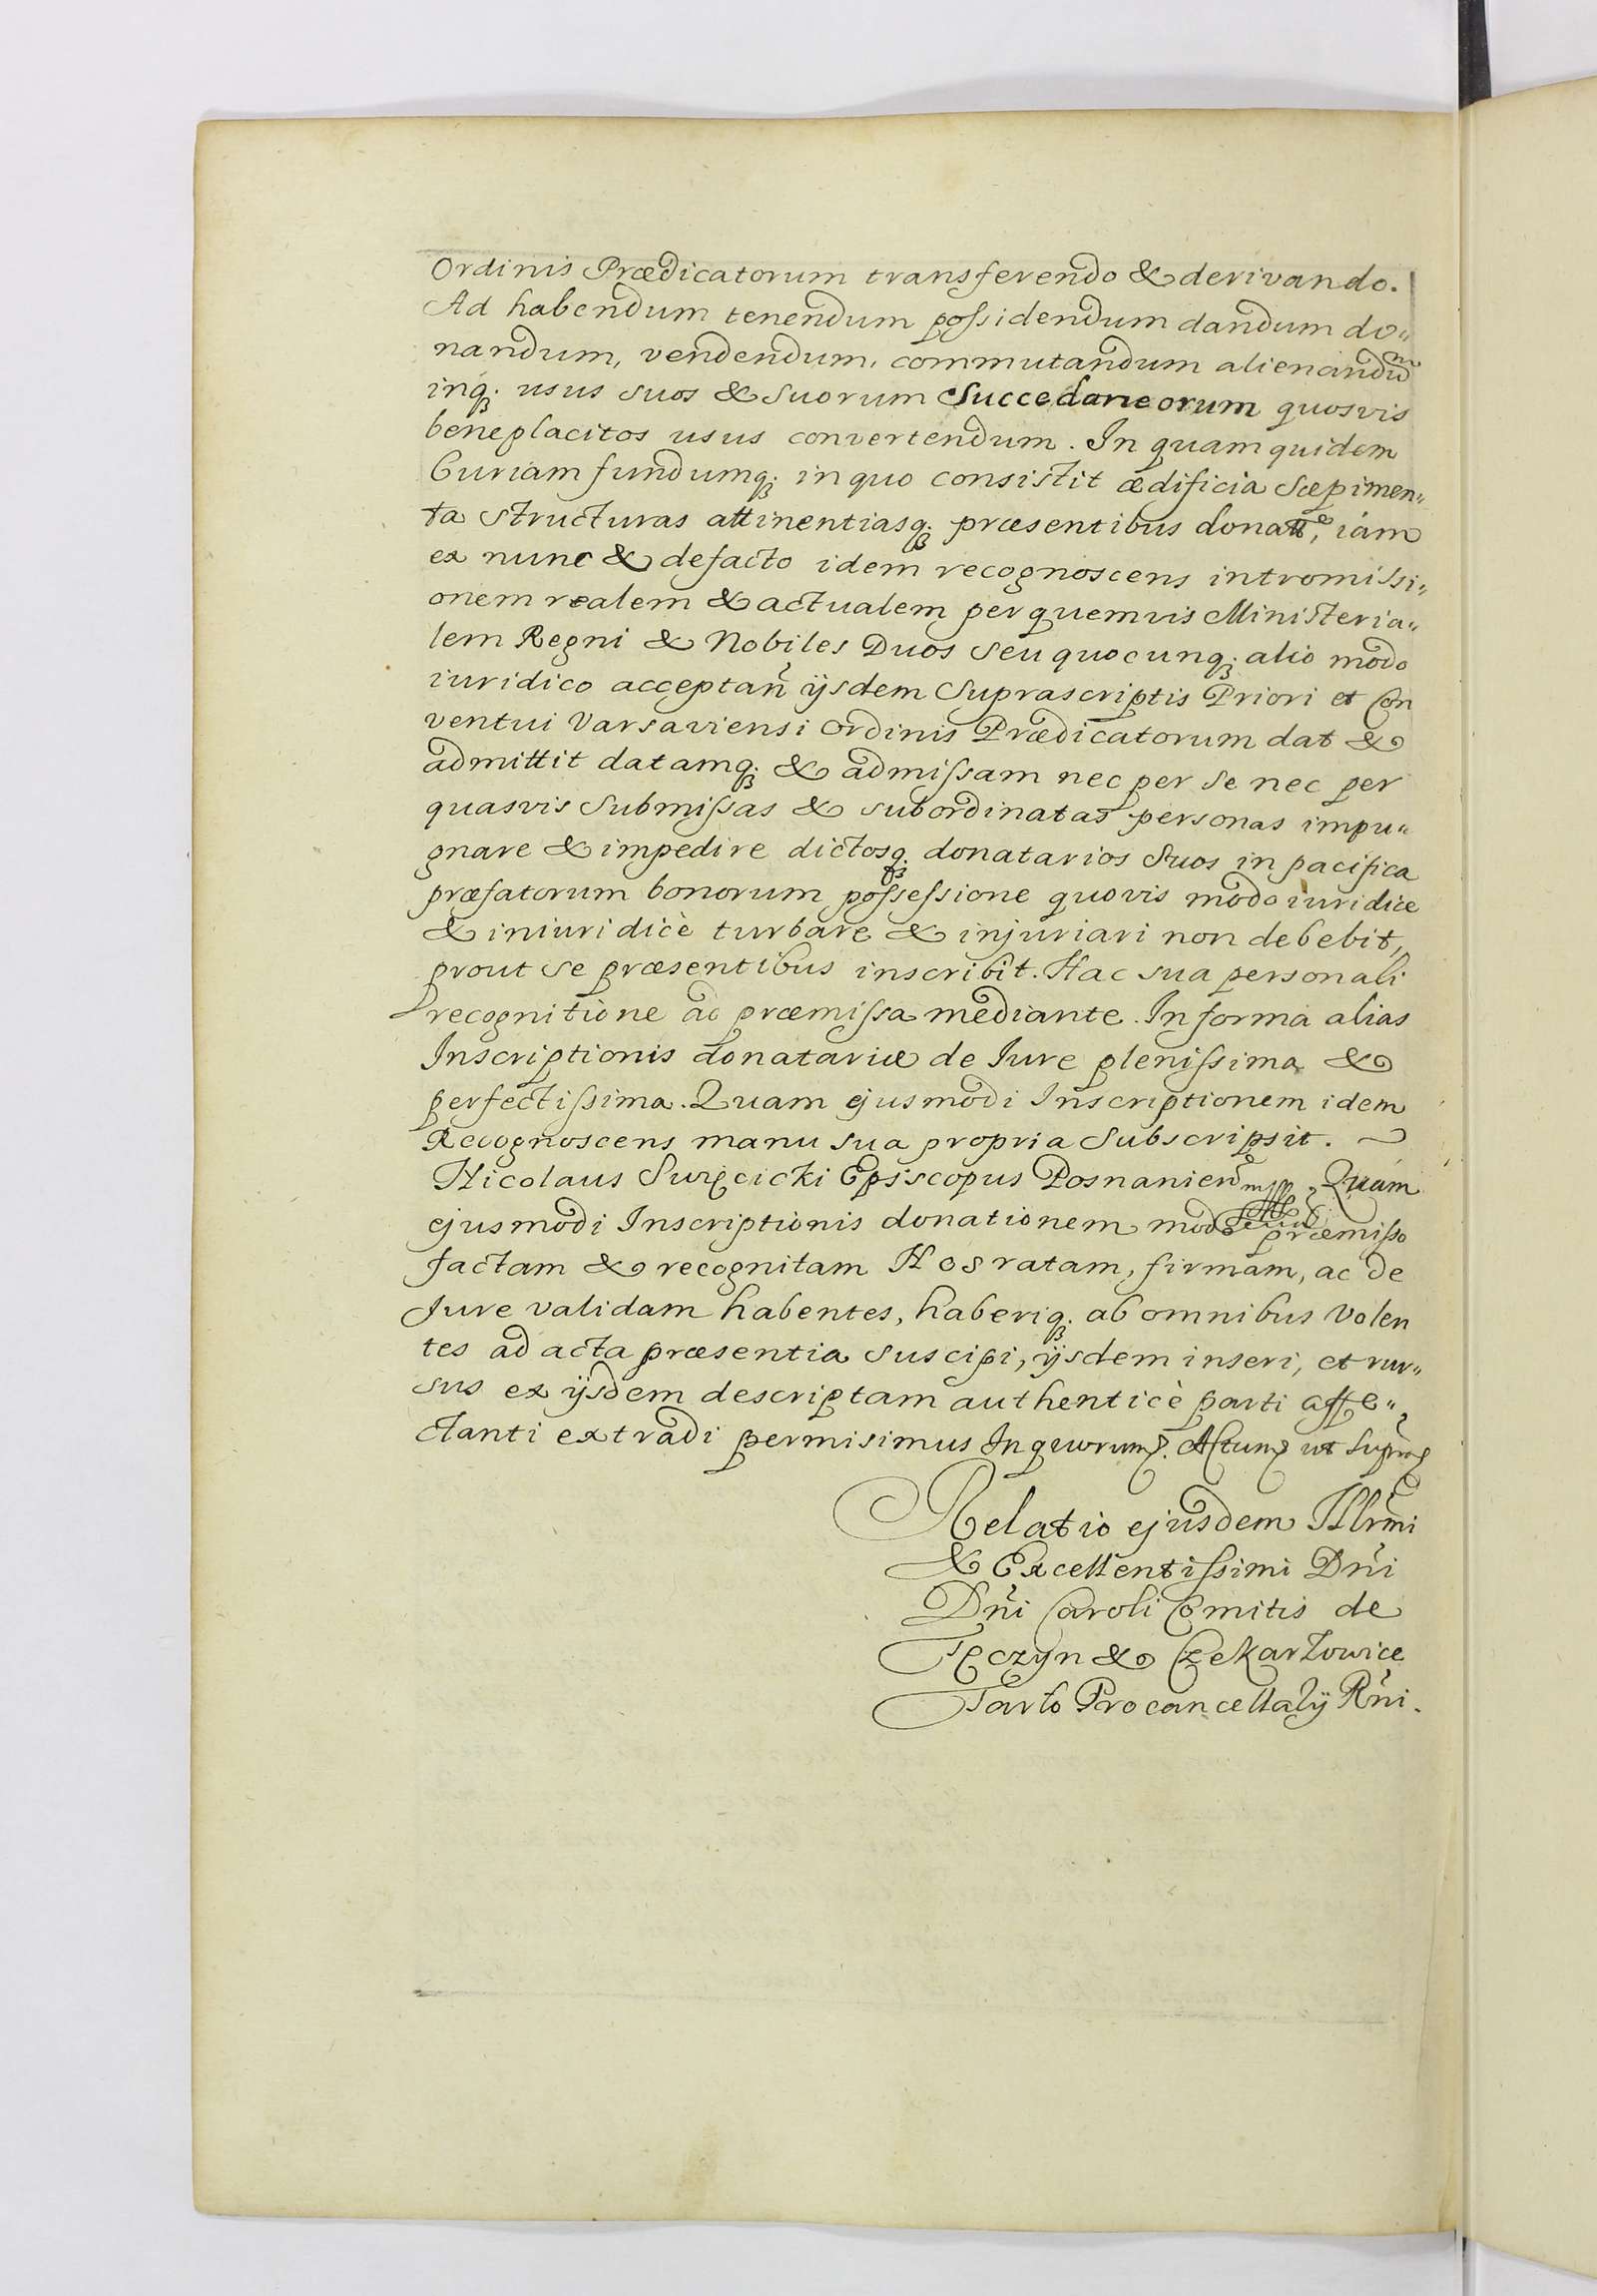 Ordinis Prædicatorum transferendo & derivando.
Ad habendum tenendum possidendum dandum do„
nandum, vendendum, commutandum alienandũ
inq; usus suos & suorum Succedaneorum quosvis
beneplacitos usus convertendum. In quam quidem
Curiam fundumq; in quo consistit ædificia Sæpimen„
ta structuras attinentiasq; præsentibus donatt, iam
ex nunc & defacto idem recognoscens intromissi„
onem realem & actualem per quemvis Ministeria„
lem Regni & Nobiles Duos seu quocunq; alio modo
iuridico acceptañ ijsdem Suprascriptis Priori et Con
ventui Varsaviensi Ordinis Prædicatorum dat &
admittit datamq; & admissam nec per se nec per
quasvis submissas & subordinatas personas impu„
gnare & impedire dictosq; donatarios suos in pacifica
præfatorum bonorum possessione quovis modo iuridice
& iniuridicè turbare & injuriari non debebit,
prout se præsentibus inscribit. Hac sua personali
recognitione ad præmissa mediante. In forma alias
Inscriptionis donatariæ de Iure plenissima &
perfectissima. Quam ejusmodi Inscriptionem idem
Recognoscens manu sua propria Subscripsit.
Nicolaus Swięcicki Episcopus Posnanien mpp Quam
ejusmodi Inscriptionis donationem modo præmisso
factam & recognitam Nos ratam, firmam, ac de
Jure validam habentes, haberiq; ab omnibus Volen
tes ad acta præsentia suscipi, ijsdem inseri, et rur„
sus ex ijsdem descriptam authenticè parti affe„
ctanti extradi permisimus In quorum. Actum ut supra
Relatio ejusdem Illrmi
& Excellentissimi Dñi
Dñi Caroli Comitis de
Tęczyn & Czekarzowice
Tarło Procancellarij Rñi.